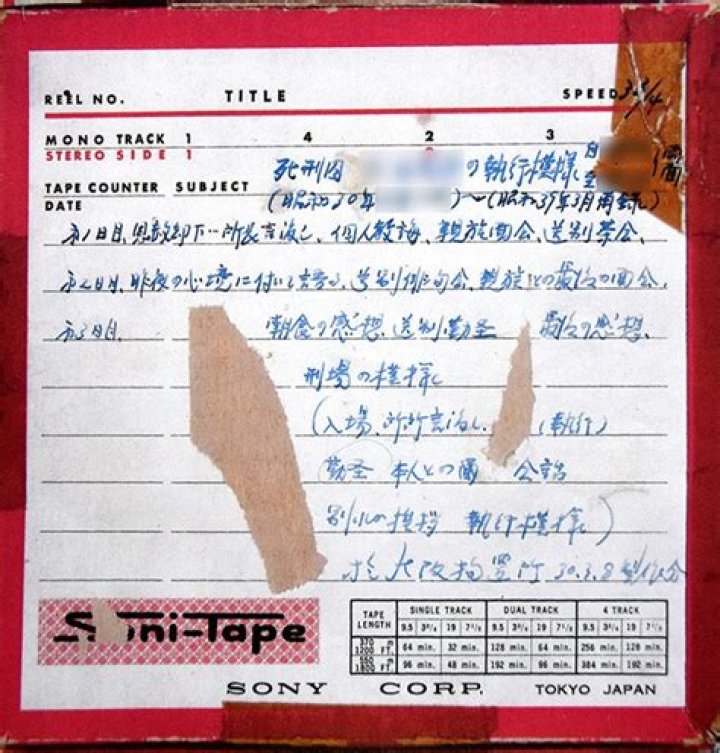 REEL NO. TITLE SPEED 3 3/4
MONO TRACK 1 4 2 3
STEREO SIDE 1 2
死刑囚 の執行模様
TAPE COUNTER SUBJECT
DATE (昭和30年 )〜(昭和39年3月再録)
恩赦却下 所長言渡し、個人教誨、親族面会、送別茶会、
昨夜の心境に付いて語る、送別俳句会、親族との最後の面会、
朝食の感想、送別勤行 最後の感想、
刑場の模様
(入場、所長言渡し、 (執行)
本人との
別れの挨拶 執行模様)
於大阪拘置所 30.3.8
Soni-Tape
TAPE LENGTH SINGLE TRACK DUAL TRACK 4 TRACK
9.5 3 3/4 19 7 1/2 9.5 3 3/4 19 7 1/2 9.5 3 3/4 19 7 1/2
370 m 1200 FT. 64 min. 32 min. 128 min. 64 min. 256 min. 128 min.
550 m 1800 FT. 96 min. 48 min. 192 min. 96 min. 384 min. 192 min.
SONY CORP. TOKYO JAPAN